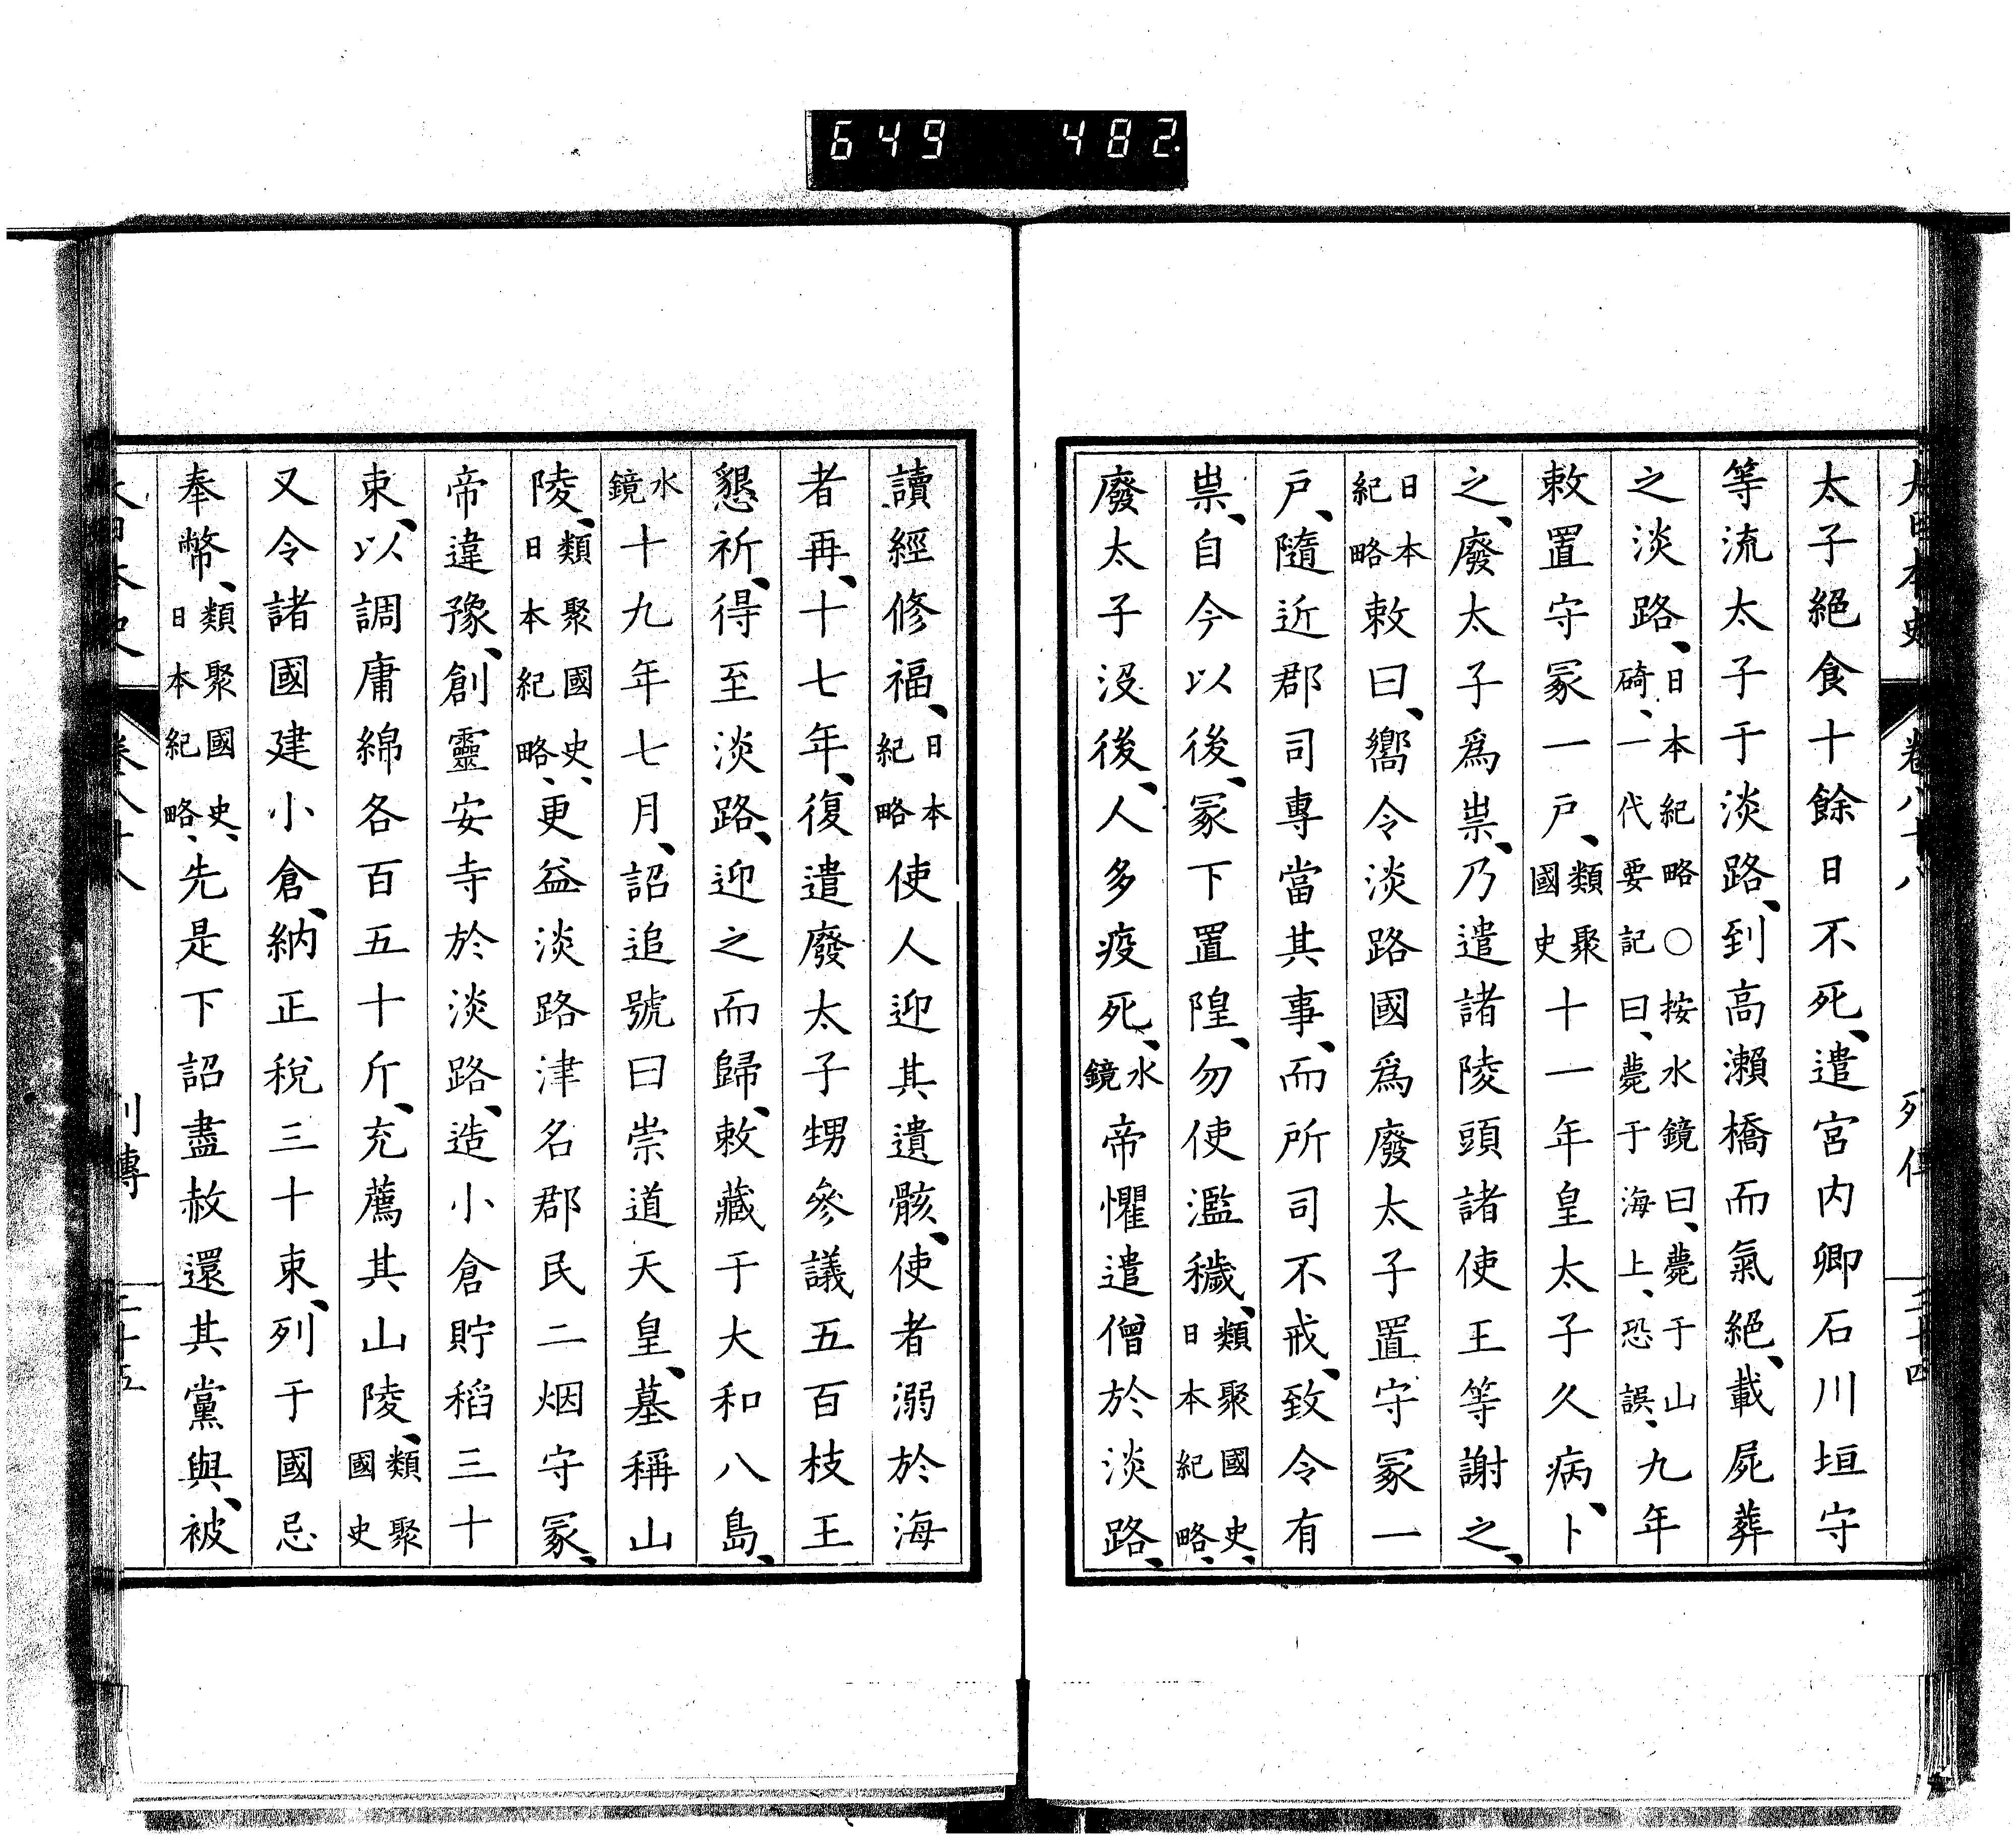 649 482.
大日本史 卷八十八 列傳 三十四
太子絕食十餘日不死、遣宮内卿石川垣守
等流太子于淡路、到高瀨橋而氣絕、載屍葬
之淡路、日本紀略○按水鏡曰、薨于山碕、一代要記曰、薨于海上、恐誤、九年
敕置守冢一戸、類聚國史十一年皇太子久病、卜
之、廢太子爲祟、乃遣諸陵頭諸使王等謝之、
日本紀略敕曰、嚮令淡路國爲廢太子置守冢一
戸、隨近郡司專當其事、而所司不戒、致令有
祟、自今以後、冢下置隍、勿使濫穢、類聚國史、日本紀略、
廢太子沒後、人多疫死、水鏡帝懼遣僧於淡路、
讀經修福、日本紀略使人迎其遺骸、使者溺於海
者再、十七年、復遣廢太子甥參議五百枝王
懇祈、得至淡路、迎之而歸、敕藏于大和八島、
水鏡十九年七月、詔追號曰崇道天皇、墓稱山
陵、類聚國史、日本紀略、更益淡路津名郡民二烟守冢、
帝違豫、創靈安寺於淡路、造小倉貯稻三十
束、以調庸綿各百五十斤、充薦其山陵、類聚國史
又令諸國建小倉、納正稅三十束、列于國忌
奉幣、類聚國史、日本紀略、先是下詔盡赦還其黨與、被
大日本史 卷八十八 列傳 三十五